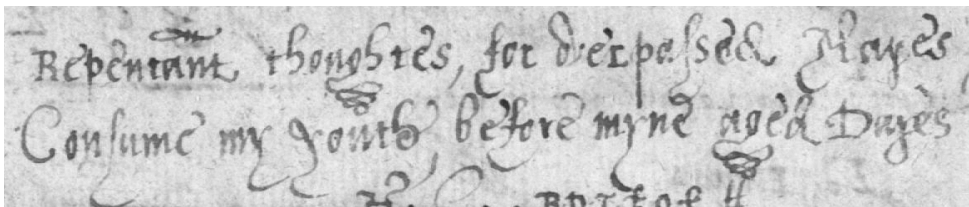 Repentant thoughtes, for overpassed
Consume my youth, before myne aged Dayes